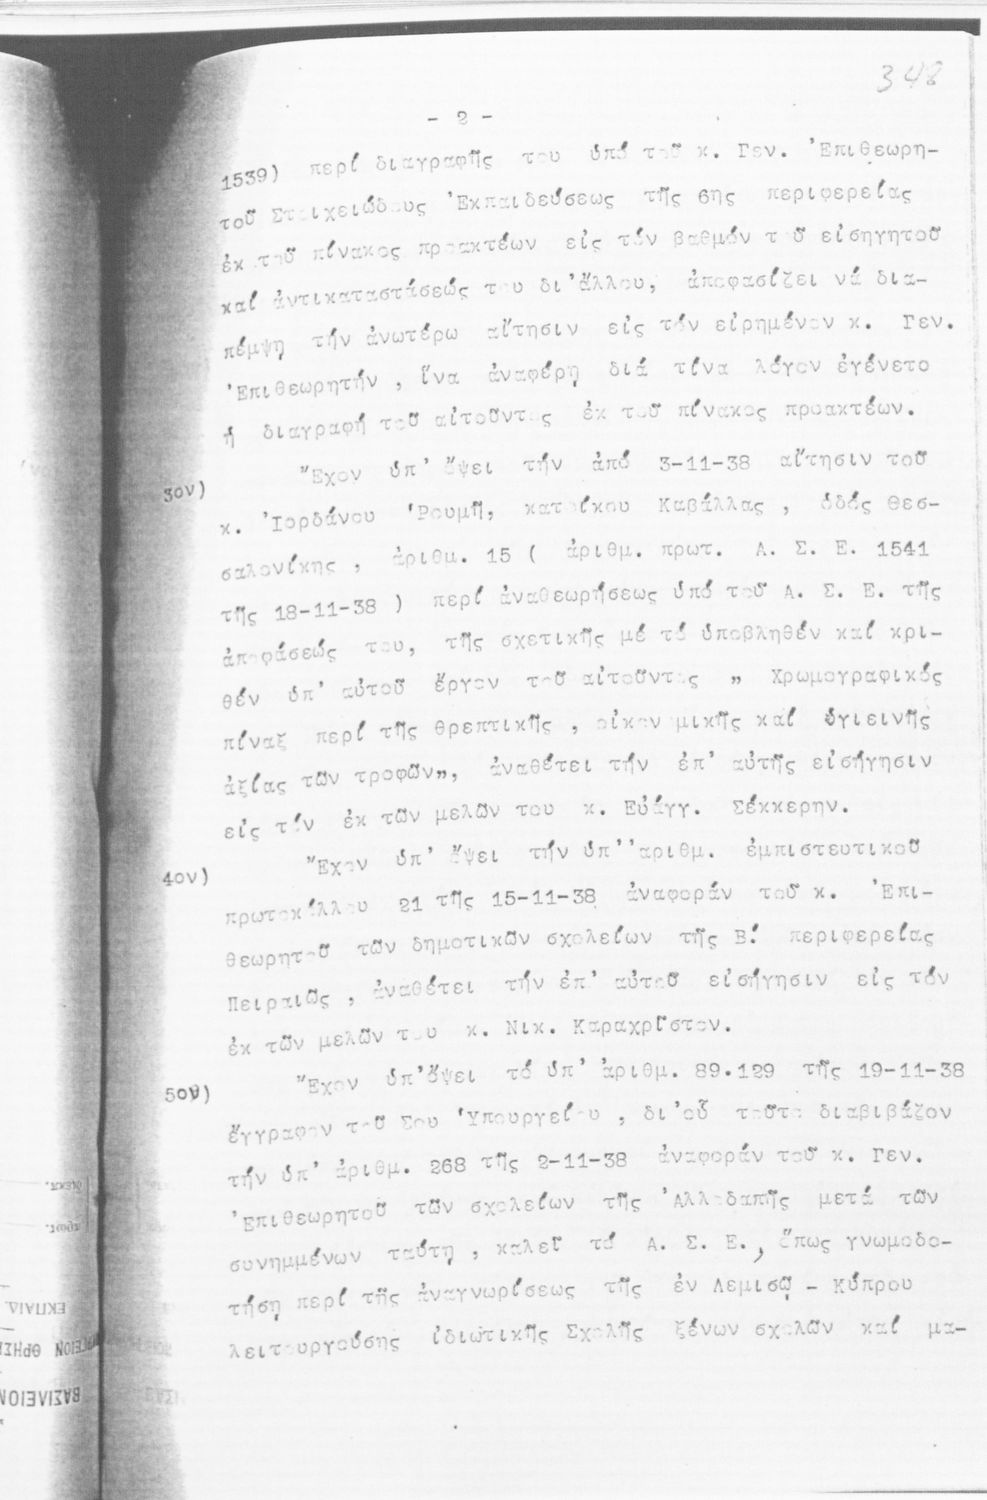 348
- 2 -
1539) περί διαγραφῆς του ὑπό τοῦ κ. Γεν. Ἐπιθεωρη-
τοῦ Στοιχειώδους Ἐκπαιδεύσεως τῆς 6ης περιφερείας
ἐκ τοῦ πίνακος προακτέων εἰς τόν βαθμόν τοῦ εἰσηγητοῦ
καί ἀντικαταστάσεώς του δι'ἄλλου, ἀποφασίζει νά δια-
πέμψῃ τήν ἀνωτέρω αἴτησιν εἰς τόν εἰρημένον κ. Γεν.
Ἐπιθεωρητήν , ἵνα ἀναφέρῃ διά τίνα λόγον ἐγένετο
ἡ διαγραφή τοῦ αἰτοῦντος ἐκ τοῦ πίνακος προακτέων.
3ον) Ἔχον ὑπ' ὄψει τήν ἀπό 3-11-38 αἴτησιν τοῦ
κ. Ἰορδάνου Ῥουμῆ, κατοίκου Καβάλλας , ὁδός Θεσ-
σαλονίκης , ἀριθμ. 15 ( ἀριθμ. πρωτ. Α. Σ. Ε. 1541
τῆς 18-11-38 ) περί ἀναθεωρήσεως ὑπό τοῦ Α. Σ. Ε. τῆς
ἀποφάσεώς του, τῆς σχετικῆς μέ τό ὑποβληθέν καί κρι-
θέν ὑπ' αὐτοῦ ἔργον τοῦ αἰτοῦντος „ Χρωμογραφικός
πίναξ περί τῆς θρεπτικῆς , οἰκονομικῆς καί ὑγιεινῆς
ἀξίας τῶν τροφῶν„, ἀναθέτει τήν ἐπ' αὐτῆς εἰσήγησιν
εἰς τόν ἐκ τῶν μελῶν του κ. Εὐάγγ. Σέκκερην.
4ον) Ἔχον ὑπ' ὄψει τήν ὑπ''αριθμ. ἐμπιστευτικοῦ
πρωτοκόλλου 21 τῆς 15-11-38 ἀναφοράν τοῦ κ. Ἐπι-
θεωρητοῦ τῶν δημοτικῶν σχολείων τῆς Β! περιφερείας
Πειραιῶς , ἀναθέτει τήν ἐπ' αὐτοῦ εἰσήγησιν εἰς τόν
ἐκ τῶν μελῶν του κ. Νικ. Καραχρῖστον.
5ον) Ἔχον ὑπ'ὄψει τό ὑπ' ἀριθμ. 89.129 τῆς 19-11-38
ἔγγραφον τοῦ Σου Ὑπουργείου , δι'οὗ τοῦτο διαβιβάζον
τήν ὑπ' ἀριθμ. 268 τῆς 2-11-38 ἀναφοράν τοῦ κ. Γεν.
Ἐπιθεωρητοῦ τῶν σχολείων τῆς Ἀλλοδαπῆς μετά τῶν
συνημμένων ταύτῃ , καλεῖ τό Α. Σ. Ε., ὅπως γνωμοδο-
τήσῃ περί τῆς ἀναγνωρίσεως τῆς ἐν Λεμισῷ - Κύπρου
λειτουργούσης ἰδιωτικῆς Σχολῆς ξένων σχολῶν καί μα-